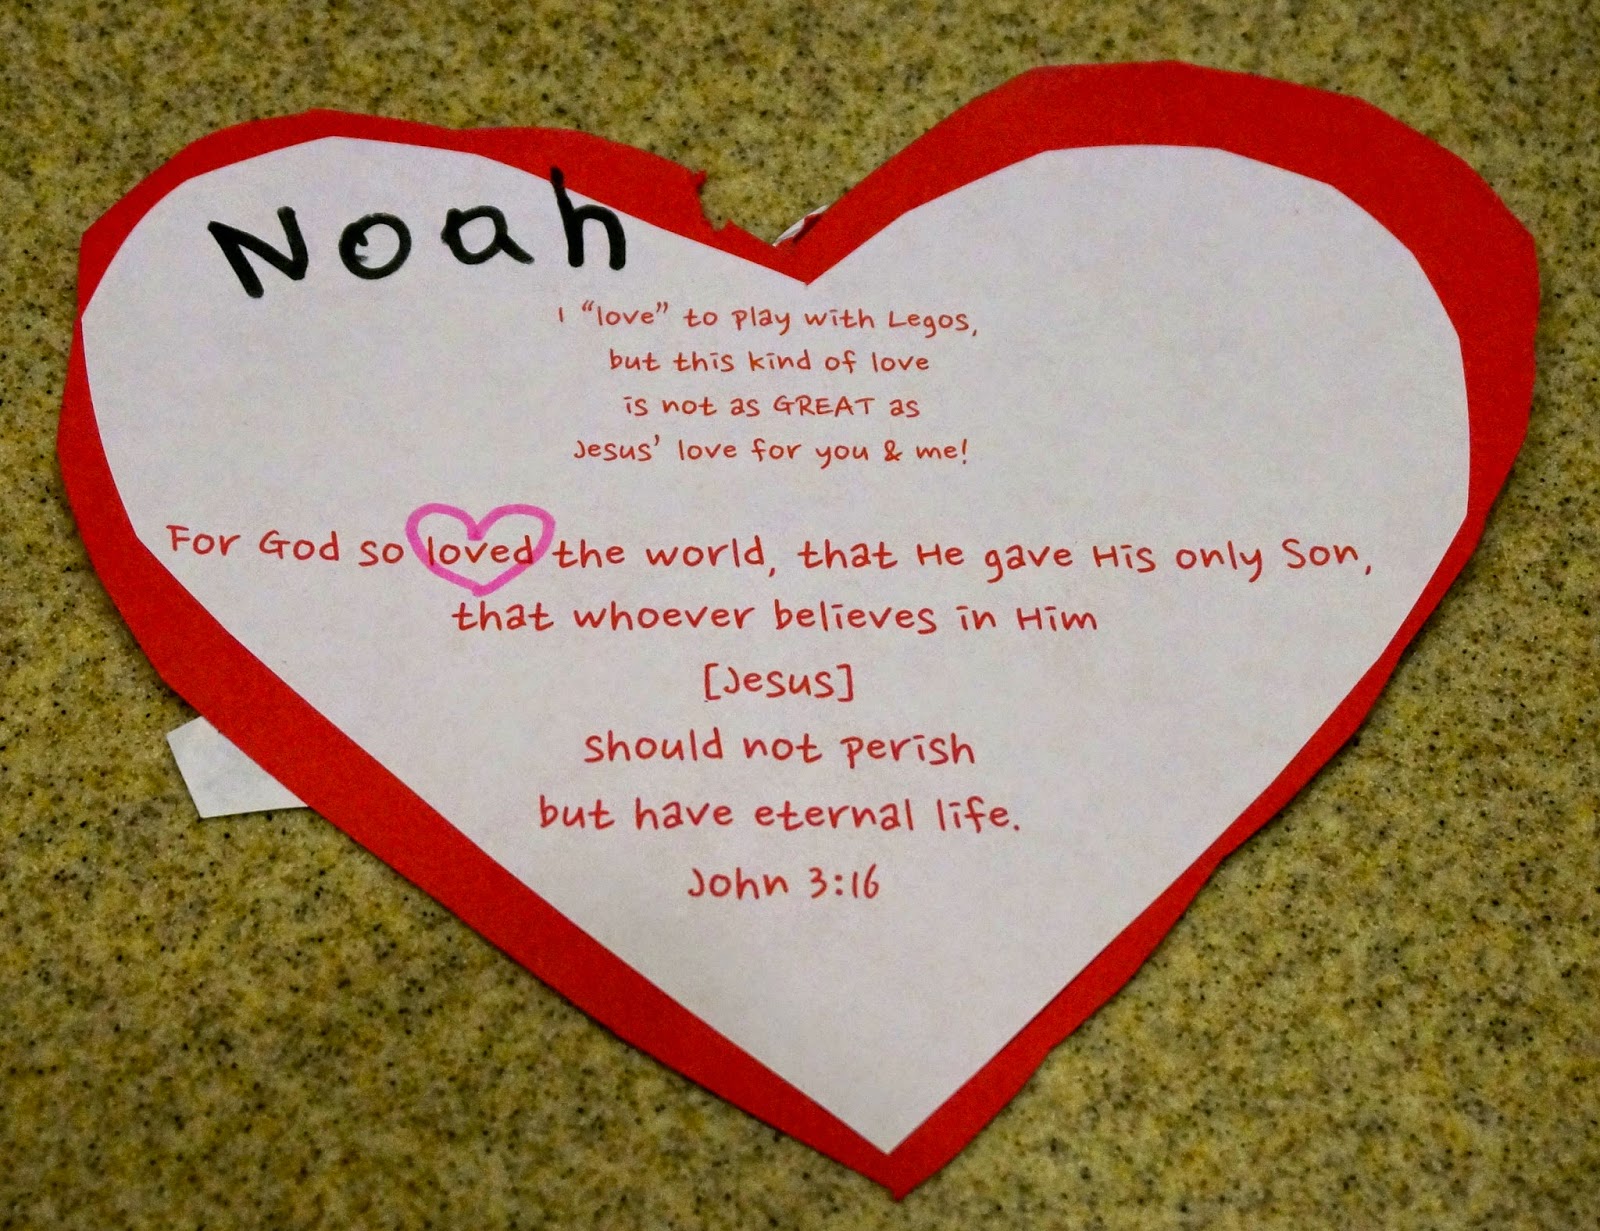 Noah
I “love” to play with Legos,
but this kind of love
is not as GREAT as
Jesus’ love for you & me!
For God so loved the world, that He gave His only Son,
that whoever believes in Him
[Jesus]
should not perish
but have eternal life.
John 3:16